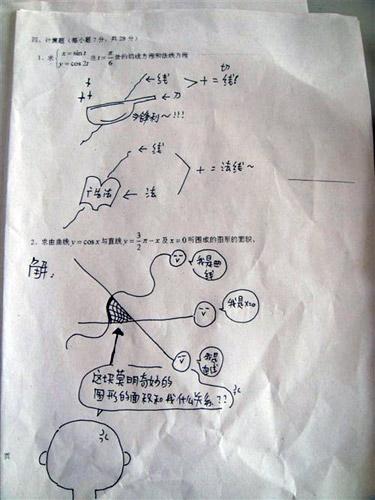 四、计算题(每小题7分,共28分)
1、求{x=sin t y=cos 2t 在t=π/6处的切线方程和法线方程
←线
←刀
> + = 切线
多锋利~!!!
←线
←法
> + = 法线~
2、求由曲线y=cos x与直线y=3/2π-x及x=0所围成的图形的面积。
解:
我是曲线
我是x=0
我是直线
这块莫明奇妙的
图形的面积和我什么关系??
页